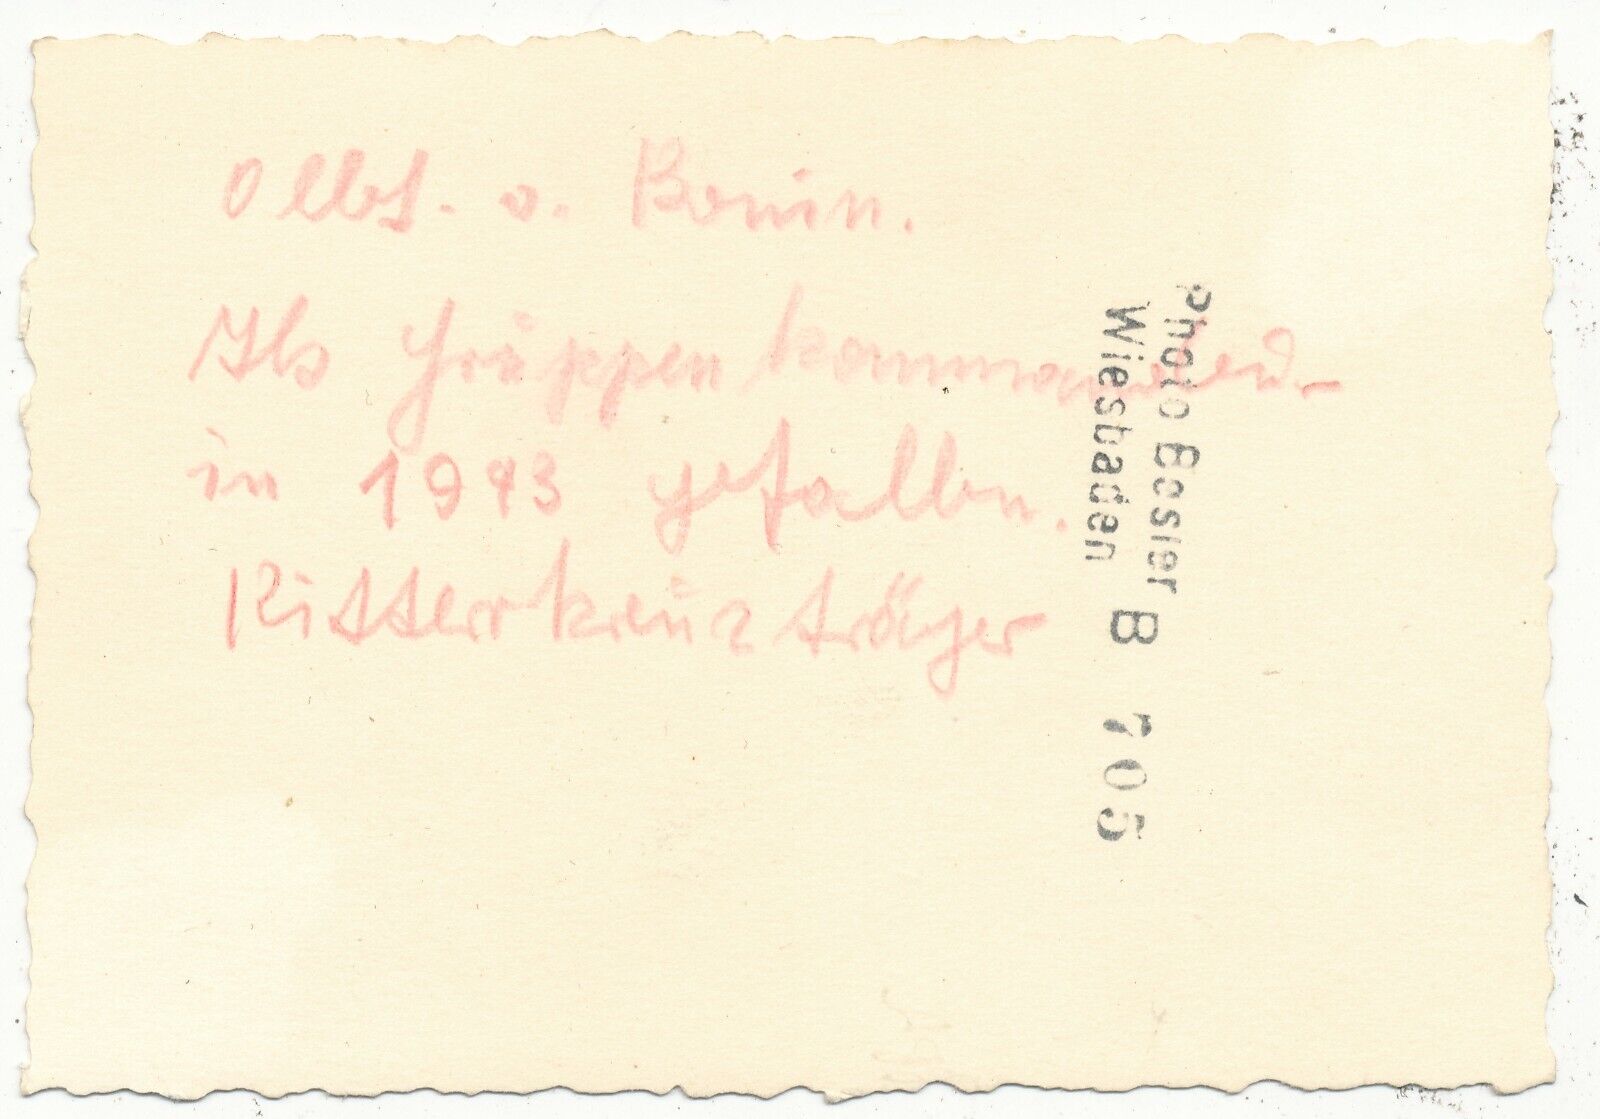 Olbt. v. Bonin.
Als Gruppenkommandeur
in 1943 gefallen.
Ritterkreuzträger
Photo Basler
Wiesbaden
B 705